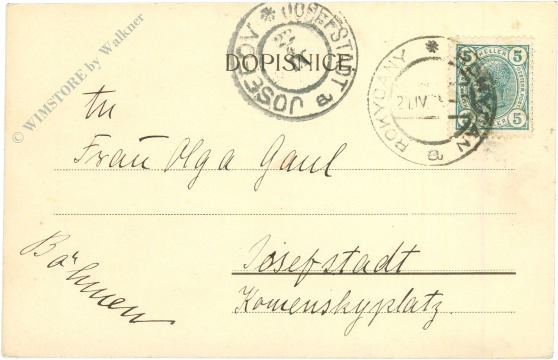 © WIMSTORE by Walkner
JOSEFSTADT * JOSEFOV
DOPISNICE
ROKYCANY *
5 HELLER 5
5 HELLER 5
An
Frau Olga Gaul
Josefstadt
Komenskyplatz.
Böhmen